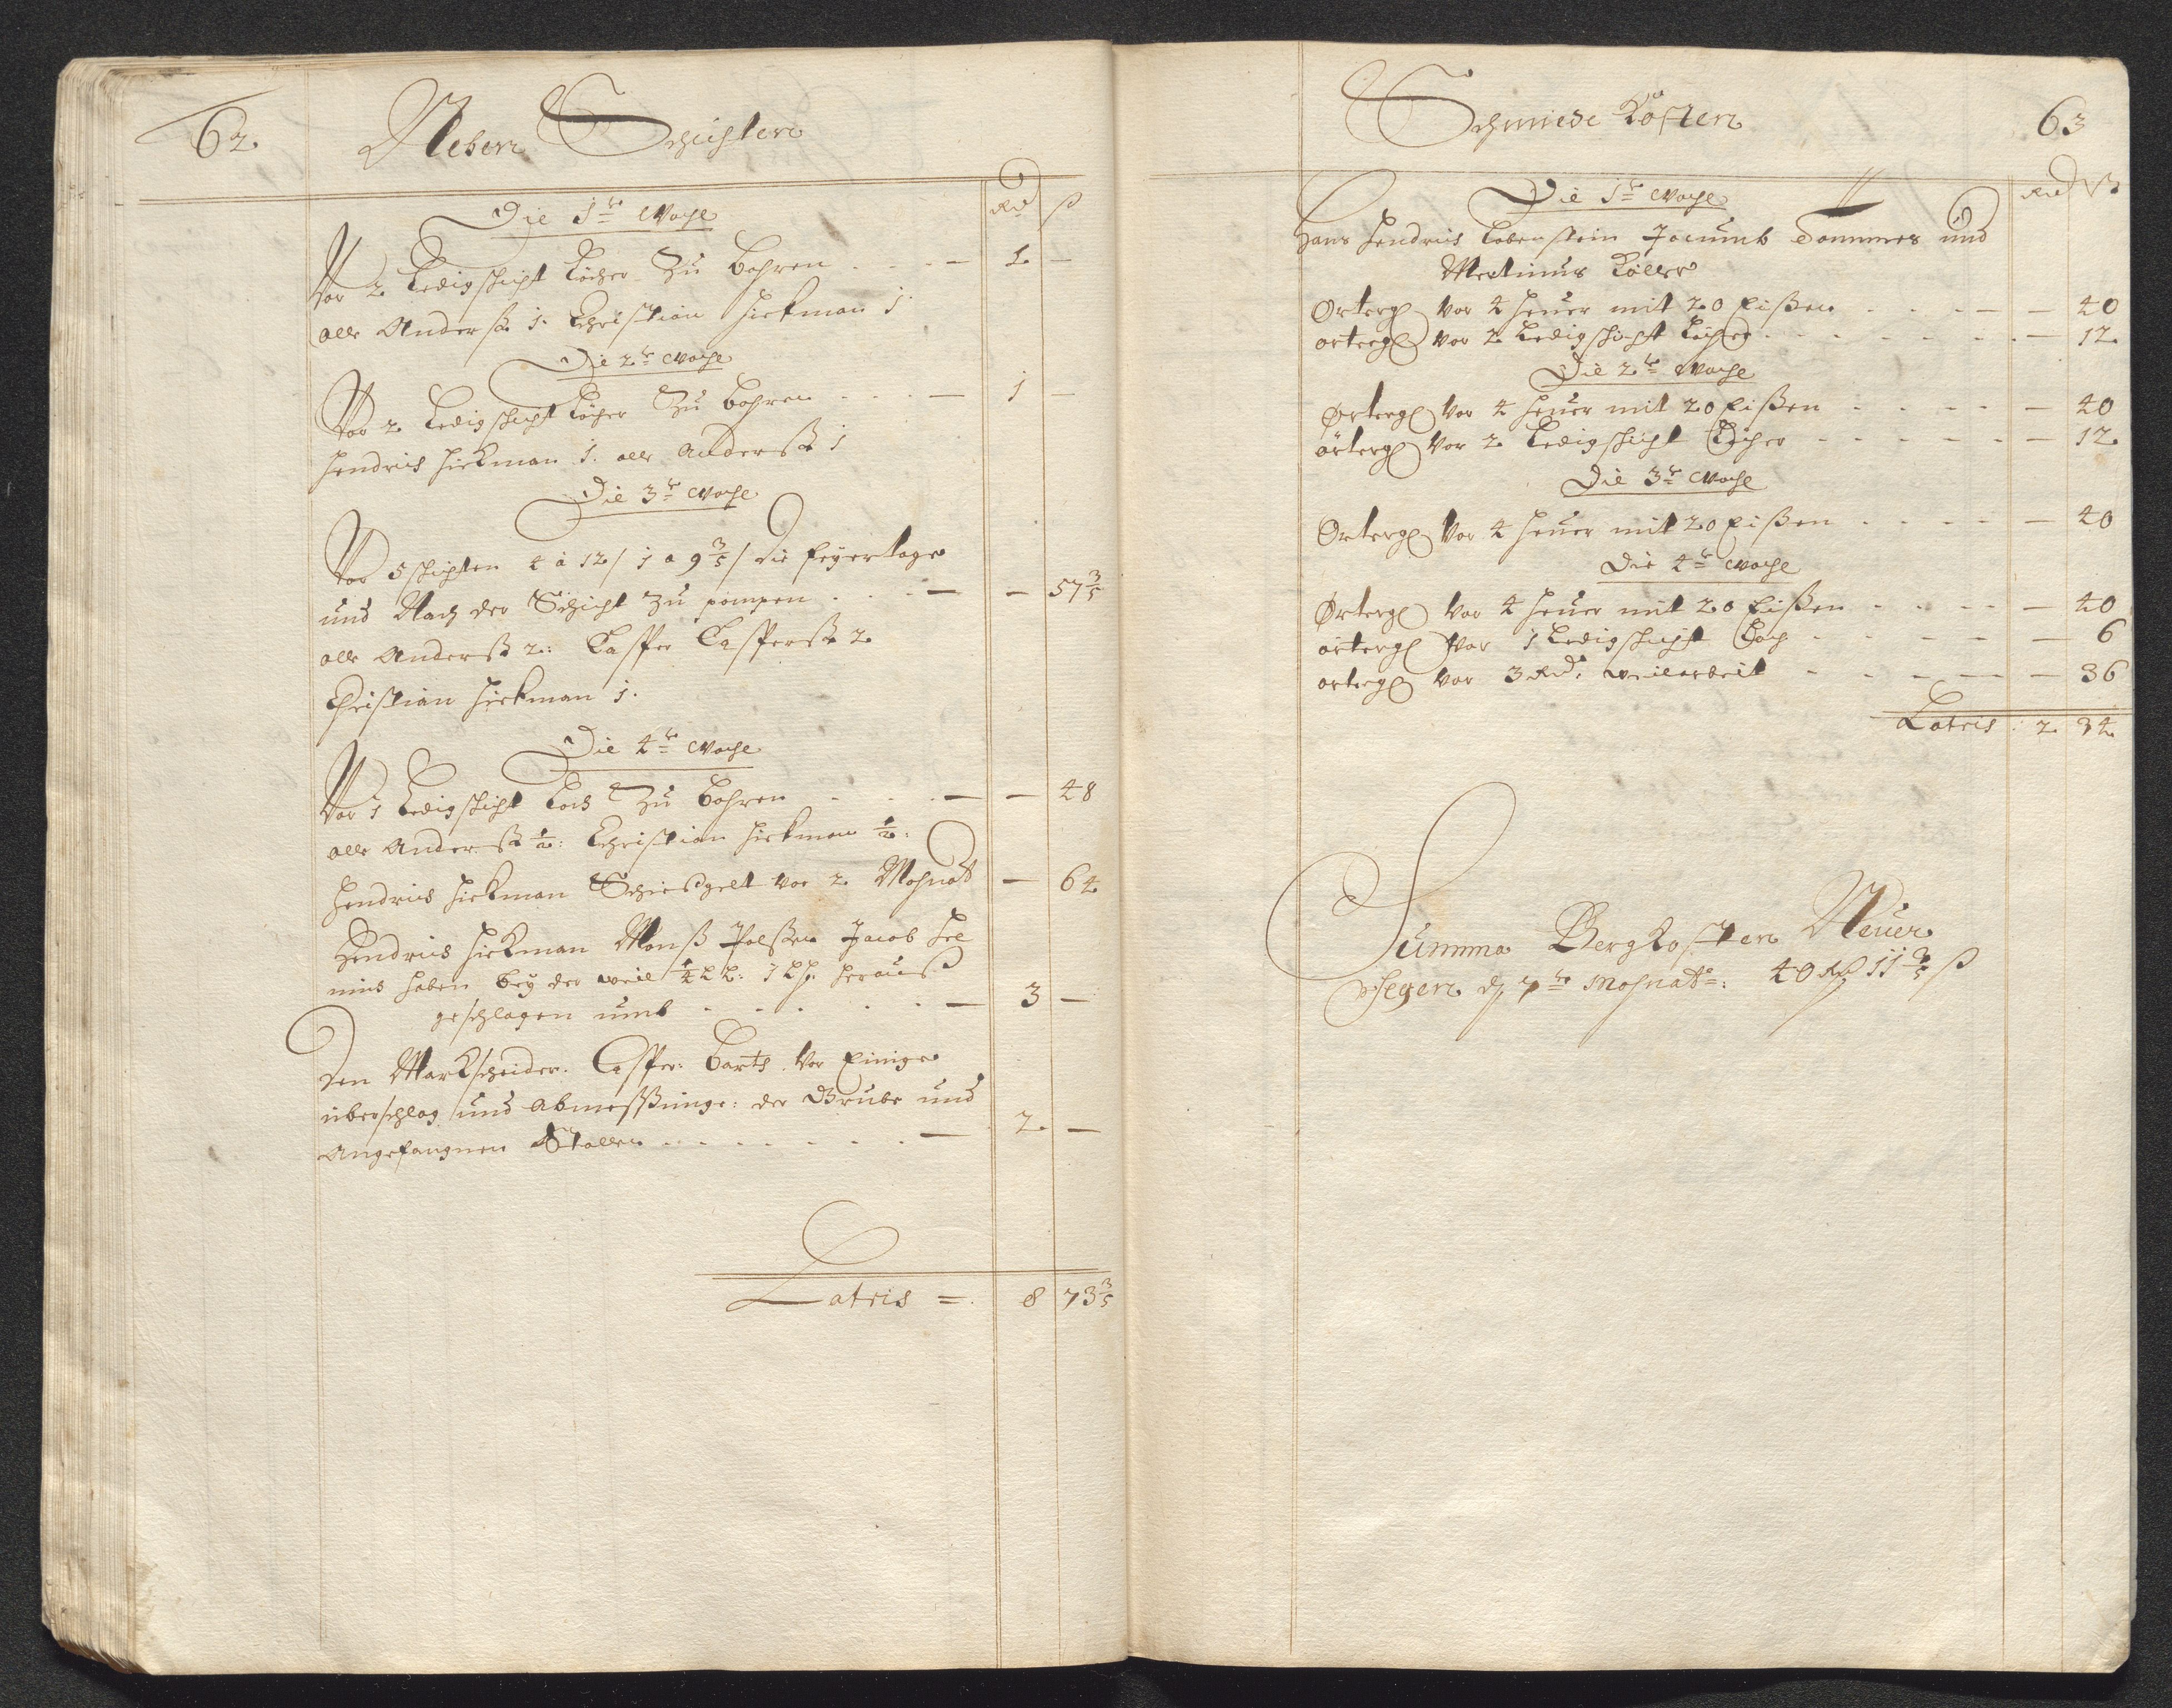 62.
Neben Schichten
Rd ß
Die 1te Woche
Vor 2 Ledigschicht Löcher Zu bohren . . . — 1 —
olle Anderß 1. Christian Hickman 1
Die 2te Woche
Vor 2 Ledigschicht Löcher Zu bohren . . . — 1 —
Hendrich Hickman 1. olle Anderß 1
Die 3te Woche
Vor 5 schichten 4 à 12 / 1 a 9 3/5 / die feyertage
und Nach der Schicht Zu pompen . . . — — 57 3/5
olle Anderß 2: Casper Casperß 2
Christian Hickman 1.
Die 4te Woche
Vor 1 Ledigschicht Loch Zu bohren . . . — — 48
olle Anderß 1/2: Christian Hickman 1/2:
Hendrich Hickman Schießgelt vor 2 Mohnat — 64
Hendrich Hickman Monß Polßen Jacob Hel
mich haben bey der weil 1/4 LL: 1 LH. herauß
geschlagen umb . . . . . — 3 —
Den Markscheider. Casper: Barth. Vor Einige
überschlag und Abmessßunge: der Grube und
Angefangnen Stollen . . . . . . . — 2 —
Latris = 8 73 3/5
Schmiede Kosten
63
Rd ß
Die 1te Woche
Hans Hendrich Lobenstein Jocumb Tommes und
Mertinus Köller
Orterg vor 4 Heuer mit 20 Eißen . . . — — 40
orterg vor 2 Ledigschicht Löcher . . . . . . — 12
Die 2te Woche
Orterg vor 4 Heuer mit 20 Eißen . . . . — 40
örterg vor 2 Ledigschicht Löcher . . . . . — 12
Die 3te Woche
Orterg vor 4 Heuer mit 20 Eißen . . . . — 40
Die 4te Woche
Orterg vor 4 Heuer mit 20 Eißen . . . . — 40
örterg vor 1 Ledigschicht Loch . . . . . — 6
orterg vor 3 Rd. weilarbeit . . . . — 36
Latris : 2 34
Summa Bergkosten Neuer
Segen d 7te Mohnat: 40 Rd 11 3/5 ß